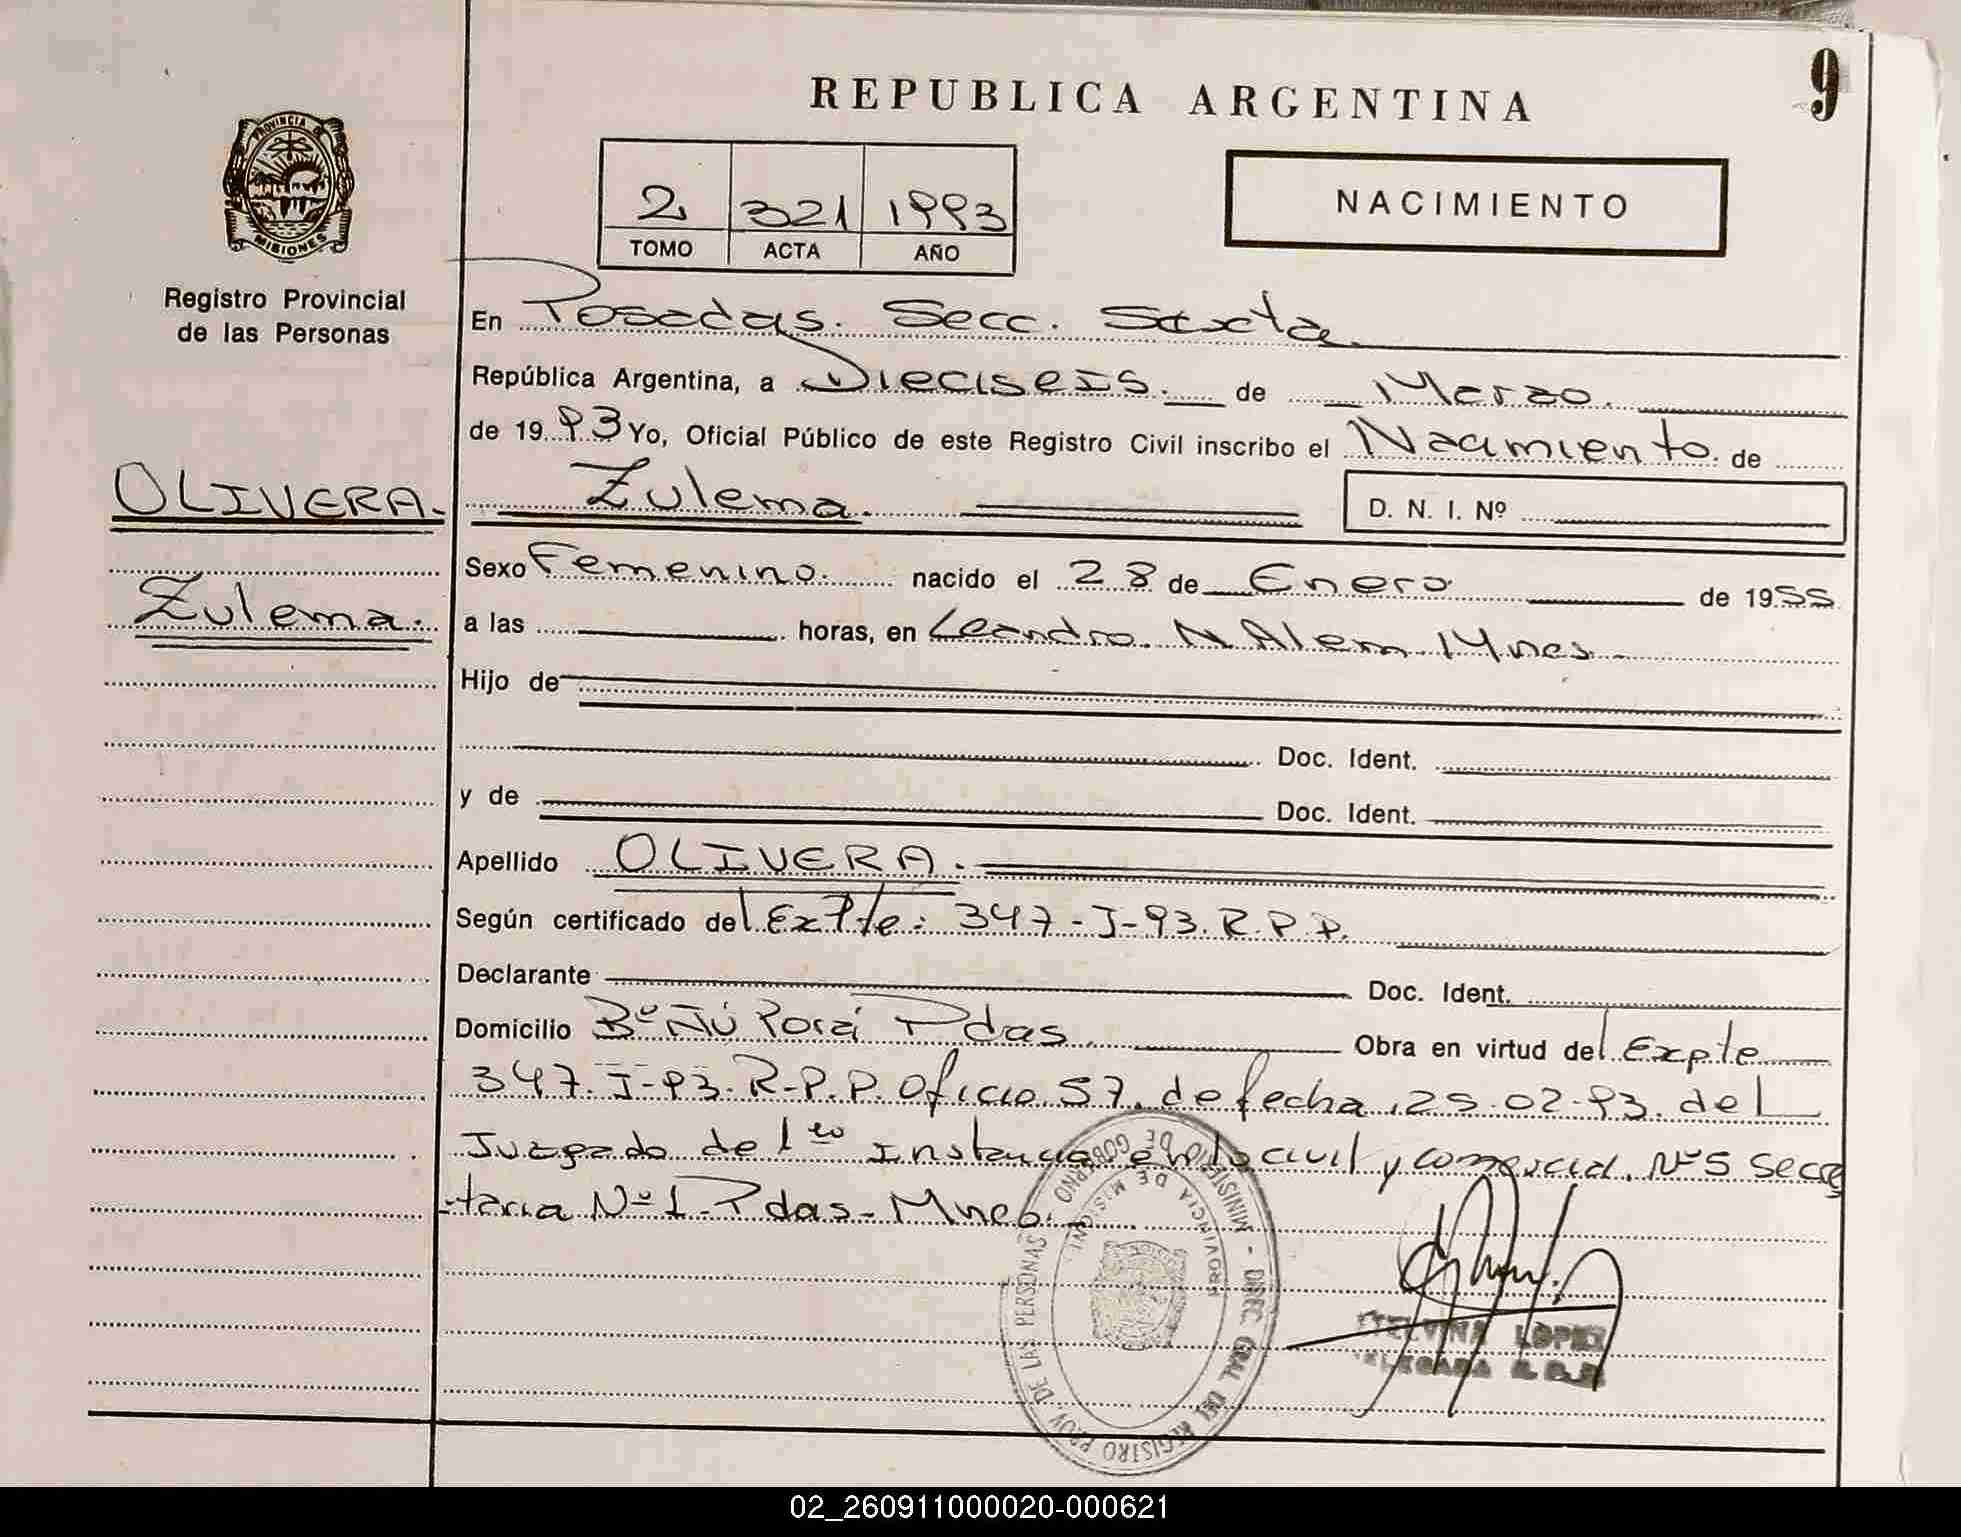 9
REPUBLICA ARGENTINA
PROVINCIA DE
MISIONES
Registro Provincial
de las Personas
2 321 1993
TOMO ACTA AÑO
NACIMIENTO
En Posadas. Secc. Sexta
República Argentina, a Dieciseis. de Marzo.
de 1993 Yo, Oficial Público de este Registro Civil inscribo el Nacimiento. de
OLIVERA.
Zulema.
Zulema.
D. N. I. Nº
Sexo Femenino. nacido el 28 de Enero de 1955
a las horas, en Leandro. N Alem Mnes
Hijo de
Doc. Ident.
y de Doc. Ident.
Apellido OLIVERA.
Según certificado del Expte: 347-J-93. R.P.P.
Declarante Doc. Ident.
Domicilio Bº Ñú Porá Pdas Obra en virtud del Expte
347-J-93-R-P.P. Oficio 57. de fecha 25-02-93. del
Juzgado de 1era Instancia en lo civil y comercial. Nº5 Secre
-taria Nº1-Pdas-Mnes.
MINISTERIO DE GOBIERNO - DIREC. GRAL. DEL REGISTRO PROV. DE LAS PERSONAS
PROVINCIA DE MISIONES
LOPEZ
02_260911000020-000621